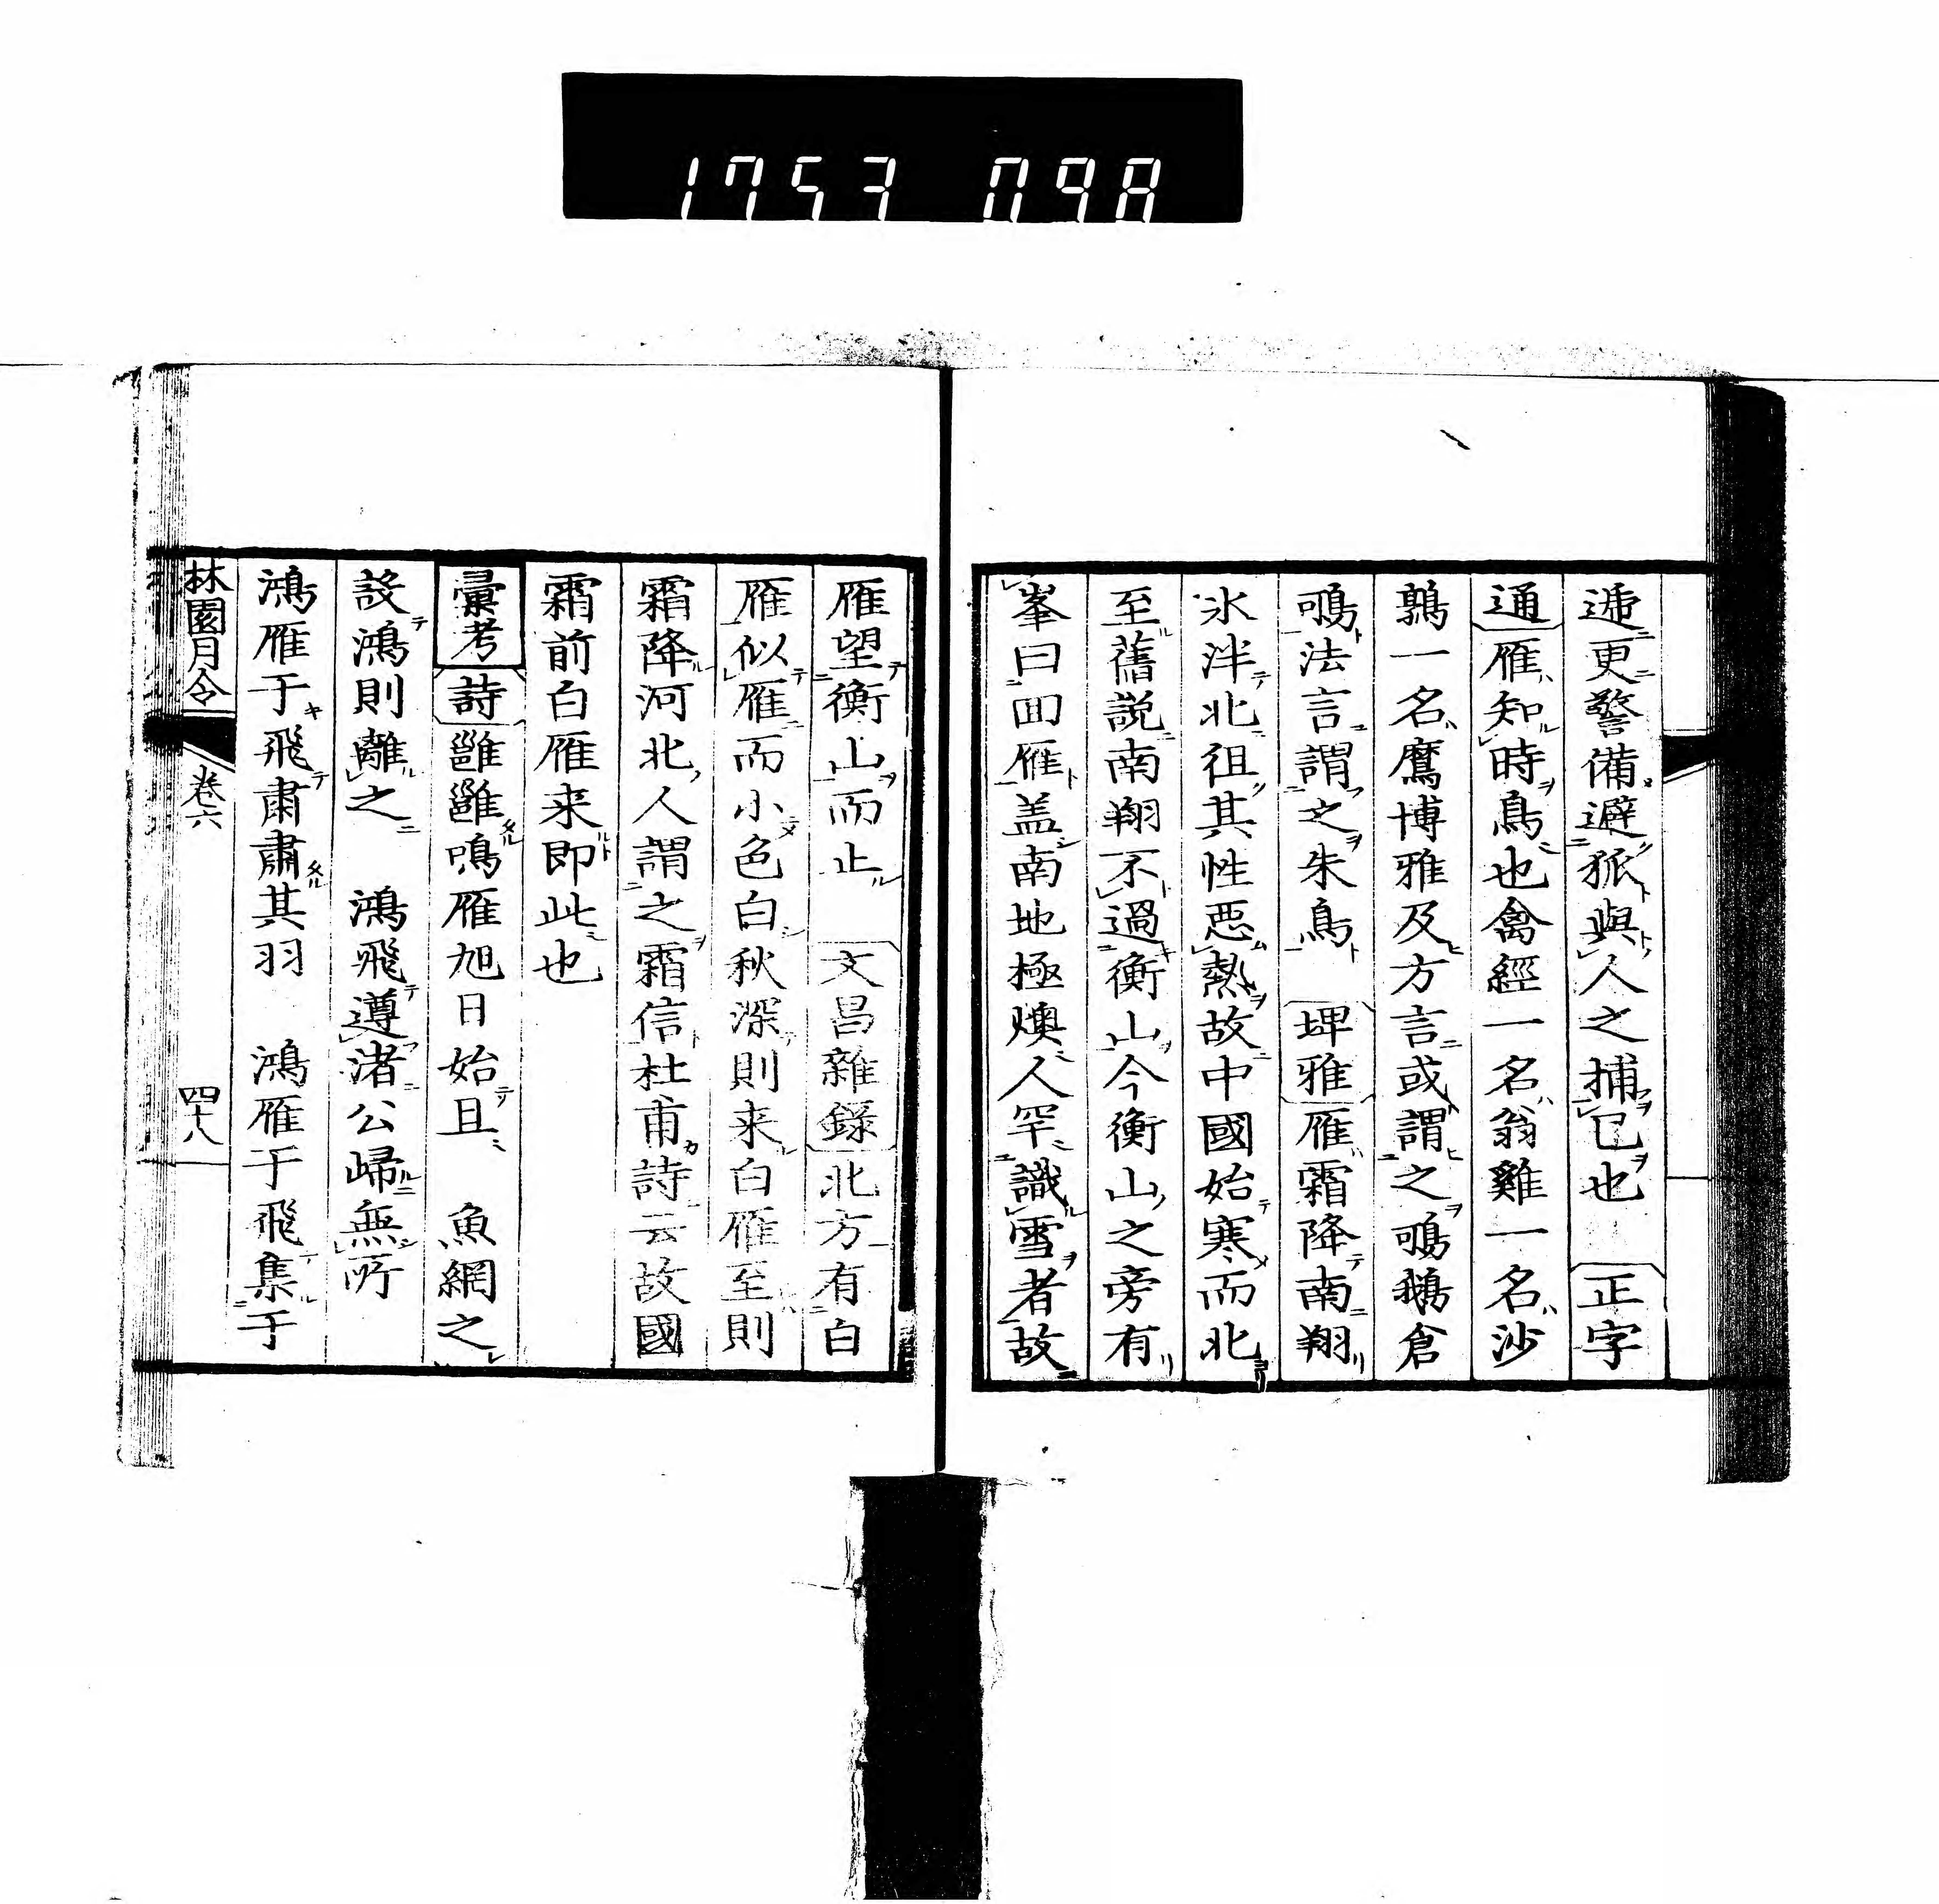 1753 098
遞更警備避狐與人之捕已也 正字
通雁知時鳥也禽經一名翁雞一名沙
鶉一名鷹博雅及方言或謂之鴚鵝倉
鴚法言謂之朱鳥 埤雅雁霜降南翔
氷泮北徂其性惡熱故中國始寒而北
至舊説南翔不過衡山今衡山之旁有
峯曰囬雁盖南地極燠人罕識雪者故
雁望衡山而止 文昌雜錄北方有白
雁似雁而小色白秋深則来白雁至則
霜降河北人謂之霜信杜甫詩云故國
霜前白雁来即此也
彙考 詩雝雝鳴雁旭日始旦 魚網之
設鴻則離之 鴻飛遵渚公歸無所
鴻雁于飛肅肅其羽 鴻雁于飛集于
林園月令 卷六 四十八